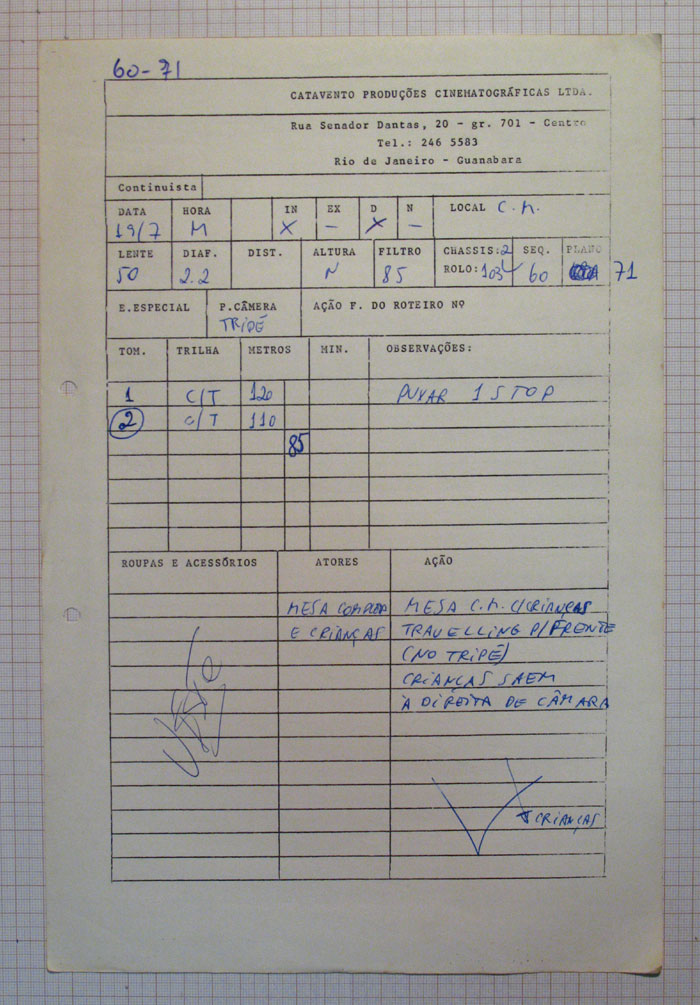 60-71
CATAVENTO PRODUÇÕES CINEMATOGRÁFICAS LTDA.
Rua Senador Dantas, 20 - gr. 701 - Centro
Tel.: 246 5583
Rio de Janeiro - Guanabara
Continuista
DATA HORA IN EX D N LOCAL C.M.
19/7 M X – X –
LENTE DIAF. DIST. ALTURA FILTRO CHASSIS:2 SEQ. PLANO
50 2.2 N 85 ROLO:103 60 71
E.ESPECIAL P.CÂMERA AÇÃO F. DO ROTEIRO Nº
TRIPÉ
TOM. TRILHA METROS MIN. OBSERVAÇÕES:
1 C/T 120 PUXAR 1 STOP
2 C/T 110
85
ROUPAS E ACESSÓRIOS ATORES AÇÃO
MESA COMPLETA MESA C.M. C/CRIANÇAS
E CRIANÇAS TRAVELLING P/FRENTE
(NO TRIPÉ)
CRIANÇAS SAEM
À DIREITA DE CÂMARA
CRIANÇAS